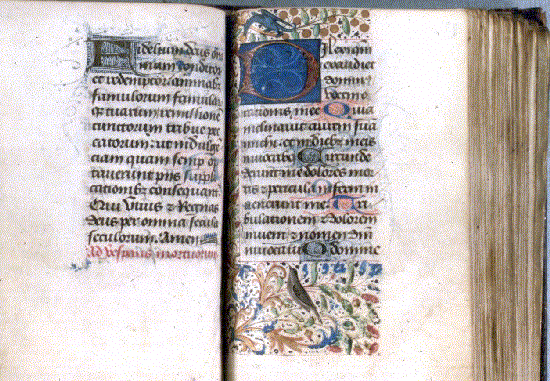 Fidelium deus om
nium conditor
et redemptor animab
famulorum famula
q tuarum remissione
cunctorum tribue pec
catorum: ut indulge
ciam quam semp op
taverunt piis suppli
cationib consequant
Qui vivis & Regnas
deus per omnia secula
seculorum. Amen
Ad vesperas mortuorum
Dilexi qm
exaudiet
domin
vocem
rationis mee Quia
inclinavit aurem sua
michi: et in dieb meis
invocabo Circunde
derunt me dolores mor
tis & pericula inferni in
venerunt me: Tri
bulationem & dolorem
inveni & nomen dni
invocavi O domine